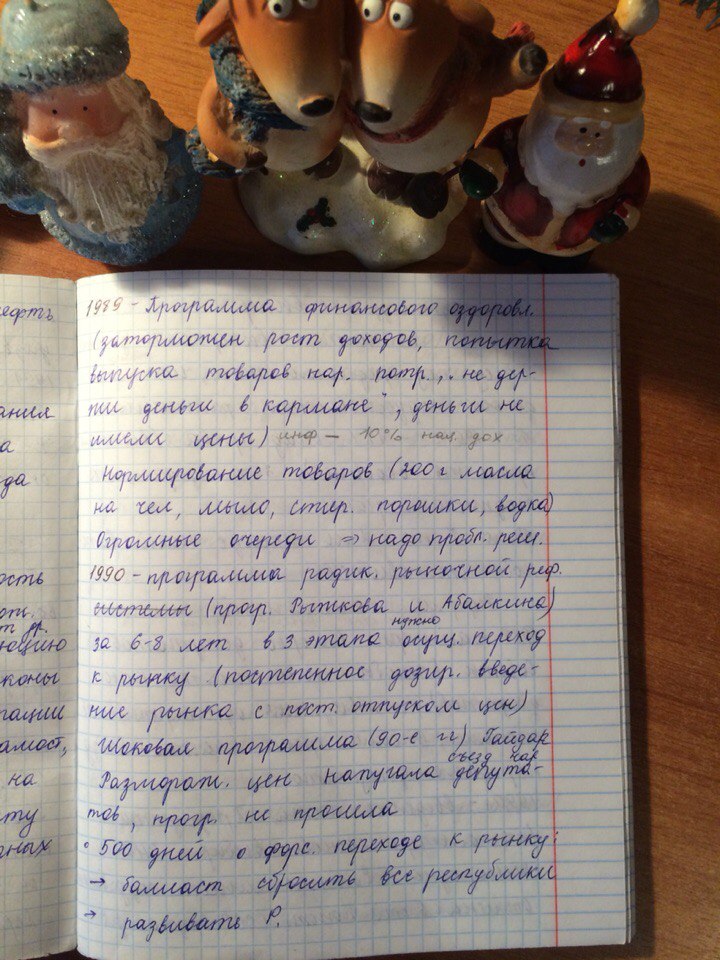 1989 - Программа финансового оздоровл.
(заторможен рост доходов, попытка
выпуска товаров нар. потр., "не дер-
жи деньги в кармане", деньги не
имели цены) инф - 10% нац. дох
Нормирование товаров (200 г масла
на чел, мыло, стир. порошки, водка)
Огромные очереди ⇒ надо пробл. реш.
1990 - программа радик. рыночной реф.
системы (прогр. Рыжкова и Абалкина)
нужно
за 6-8 лет в 3 этапа осущ. переход
к рынку (постепенное дозир. введе-
ние рынка с пост. отпуском цен)
Шоковая программа (90-е гг) Гайдар
съезд нар
Разморож. цен напугала депута-
тов, прогр. не прошла
• 500 дней о форс. переходе к рынку:
→ балласт сбросить все республики
→ развивать Р.
нефть
ания
а
да
ость
др.
юцию
коны
рации
амост,
на
ату
ных